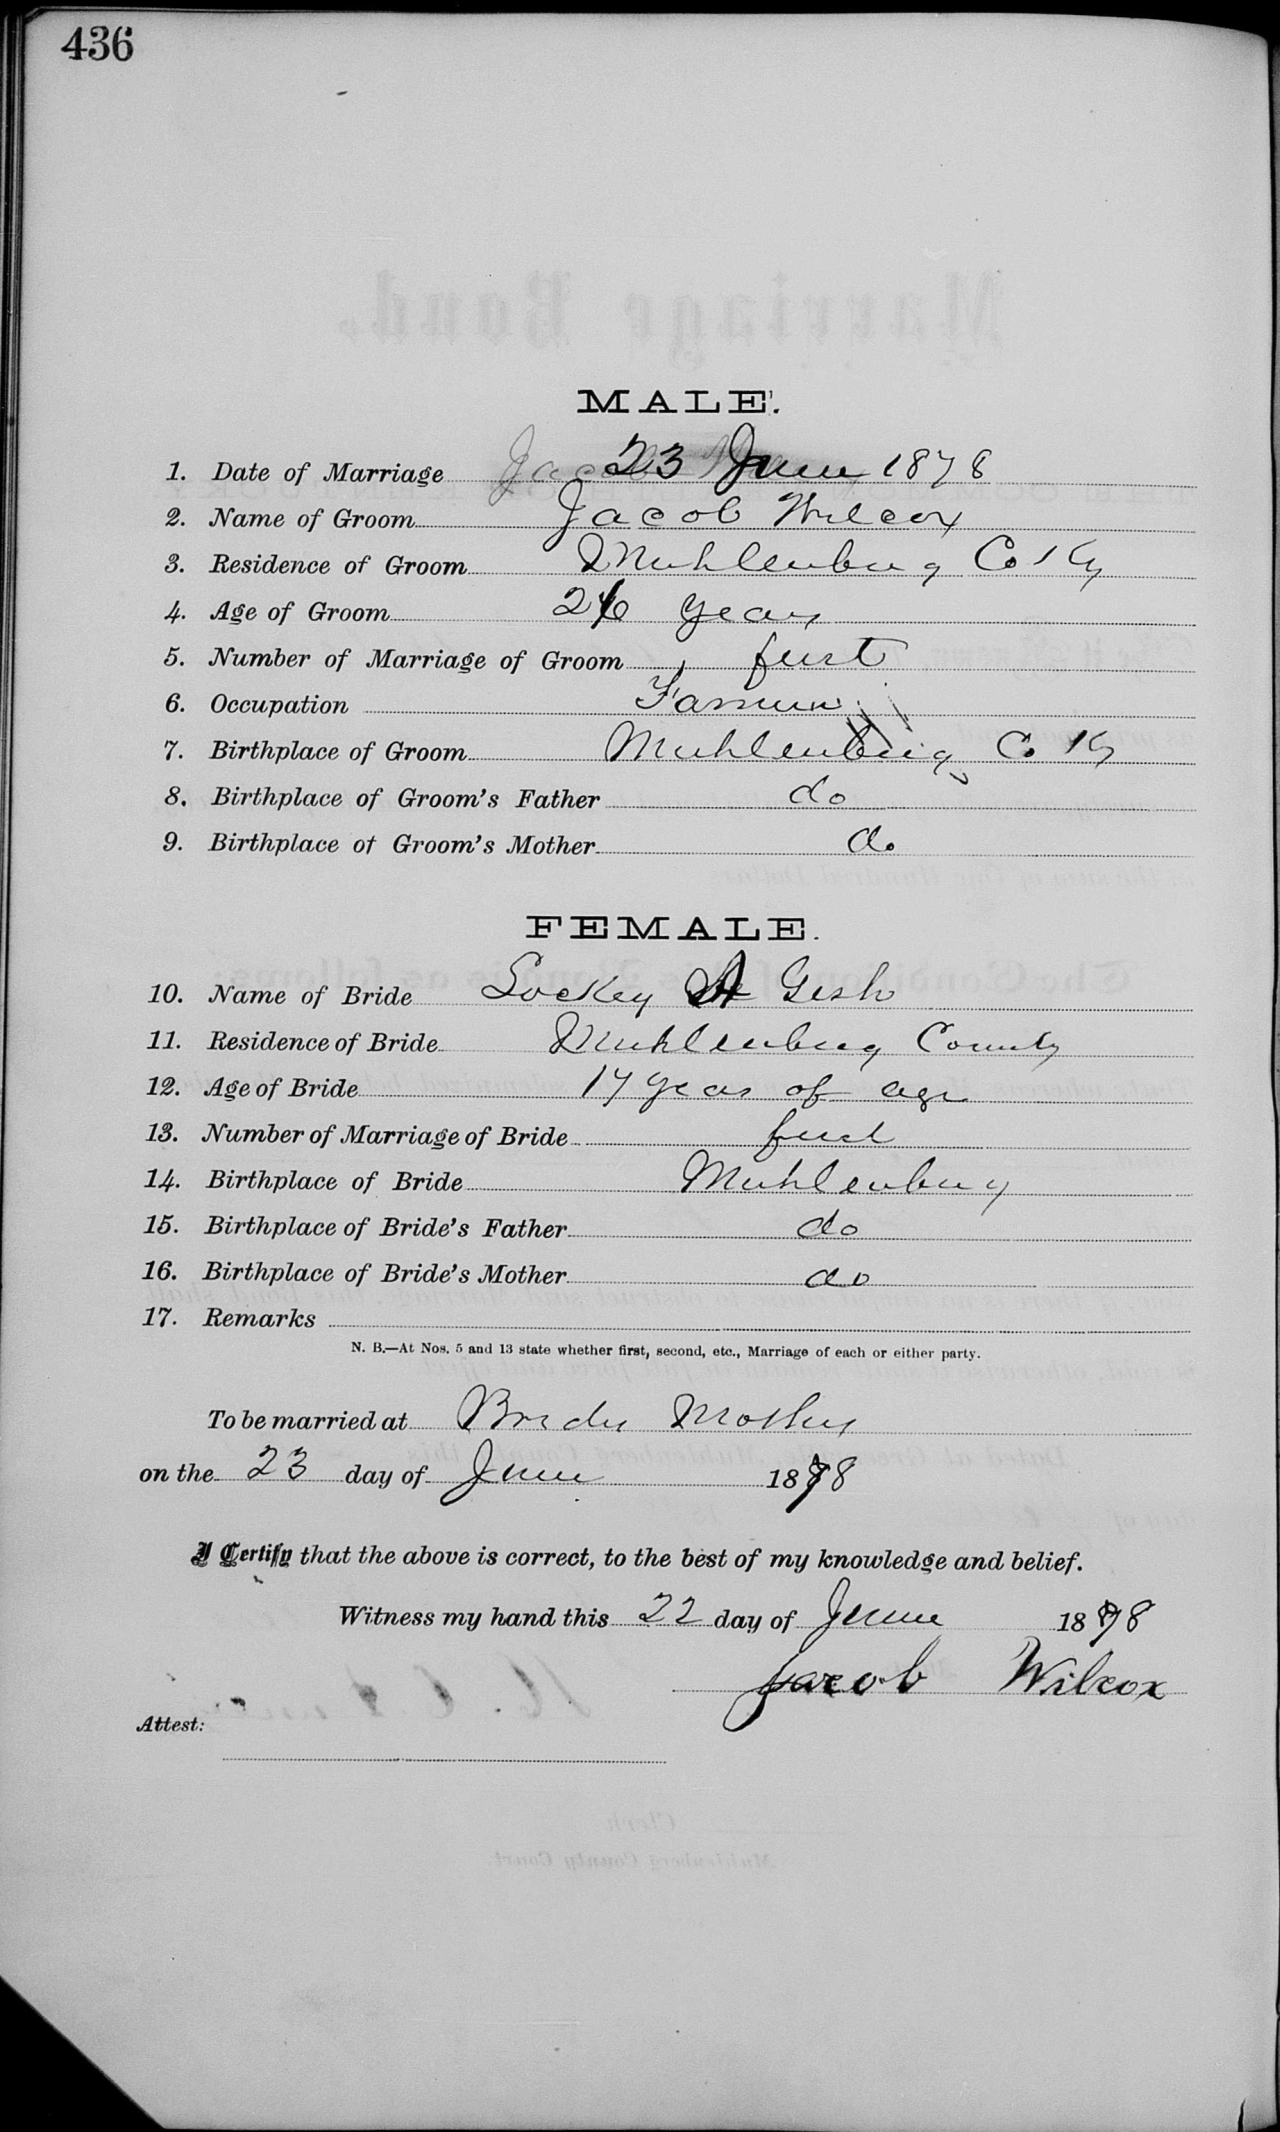 436
MALE.
1. Date of Marriage 23 June 1878
2. Name of Groom Jacob Wilcox
3. Residence of Groom Muhlenburg Co Ky
4. Age of Groom 26 years
5. Number of Marriage of Groom first
6. Occupation Farmer
7. Birthplace of Groom Muhlenburg Co Ky
8. Birthplace of Groom's Father do
9. Birthplace of Groom's Mother do
FEMALE.
10. Name of Bride Lockey A Gish
11. Residence of Bride Muhlenburg County
12. Age of Bride 17 years of age
13. Number of Marriage of Bride first
14. Birthplace of Bride Muhlenburg
15. Birthplace of Bride's Father do
16. Birthplace of Bride's Mother do
17. Remarks
N. B.—At Nos. 5 and 13 state whether first, second, etc., Marriage of each or either party.
To be married at Brides Mothers
on the 23 day of June 1878
I Certify that the above is correct, to the best of my knowledge and belief.
Witness my hand this 22 day of June 1878
Jacob Wilcox
Attest: